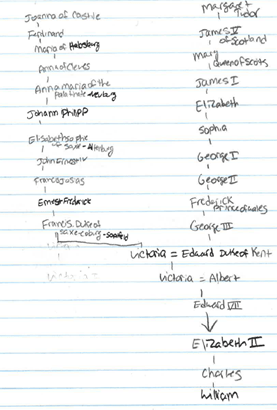 Joanna of Castile
Ferdinand
Maria of Habsburg
Anna of Cleves
Anna maria of the
Palatinate-Neuburg
Johann Philipp
Elisabeth Sophie
of Saxe-Altenburg
John Ernest IV
Francis Josias
Ernest Frederick
Francis Duke of
Saxe-Coburg-Saalfeld
Margaret
Tudor
James V
of Scotland
Mary
Queen of Scots
James I
Elizabeth
Sophia
George I
George II
Frederick
Prince of Wales
George III
Victoria = Edward Duke of Kent
Victoria = Albert
Edward VII
Elizabeth II
Charles
William